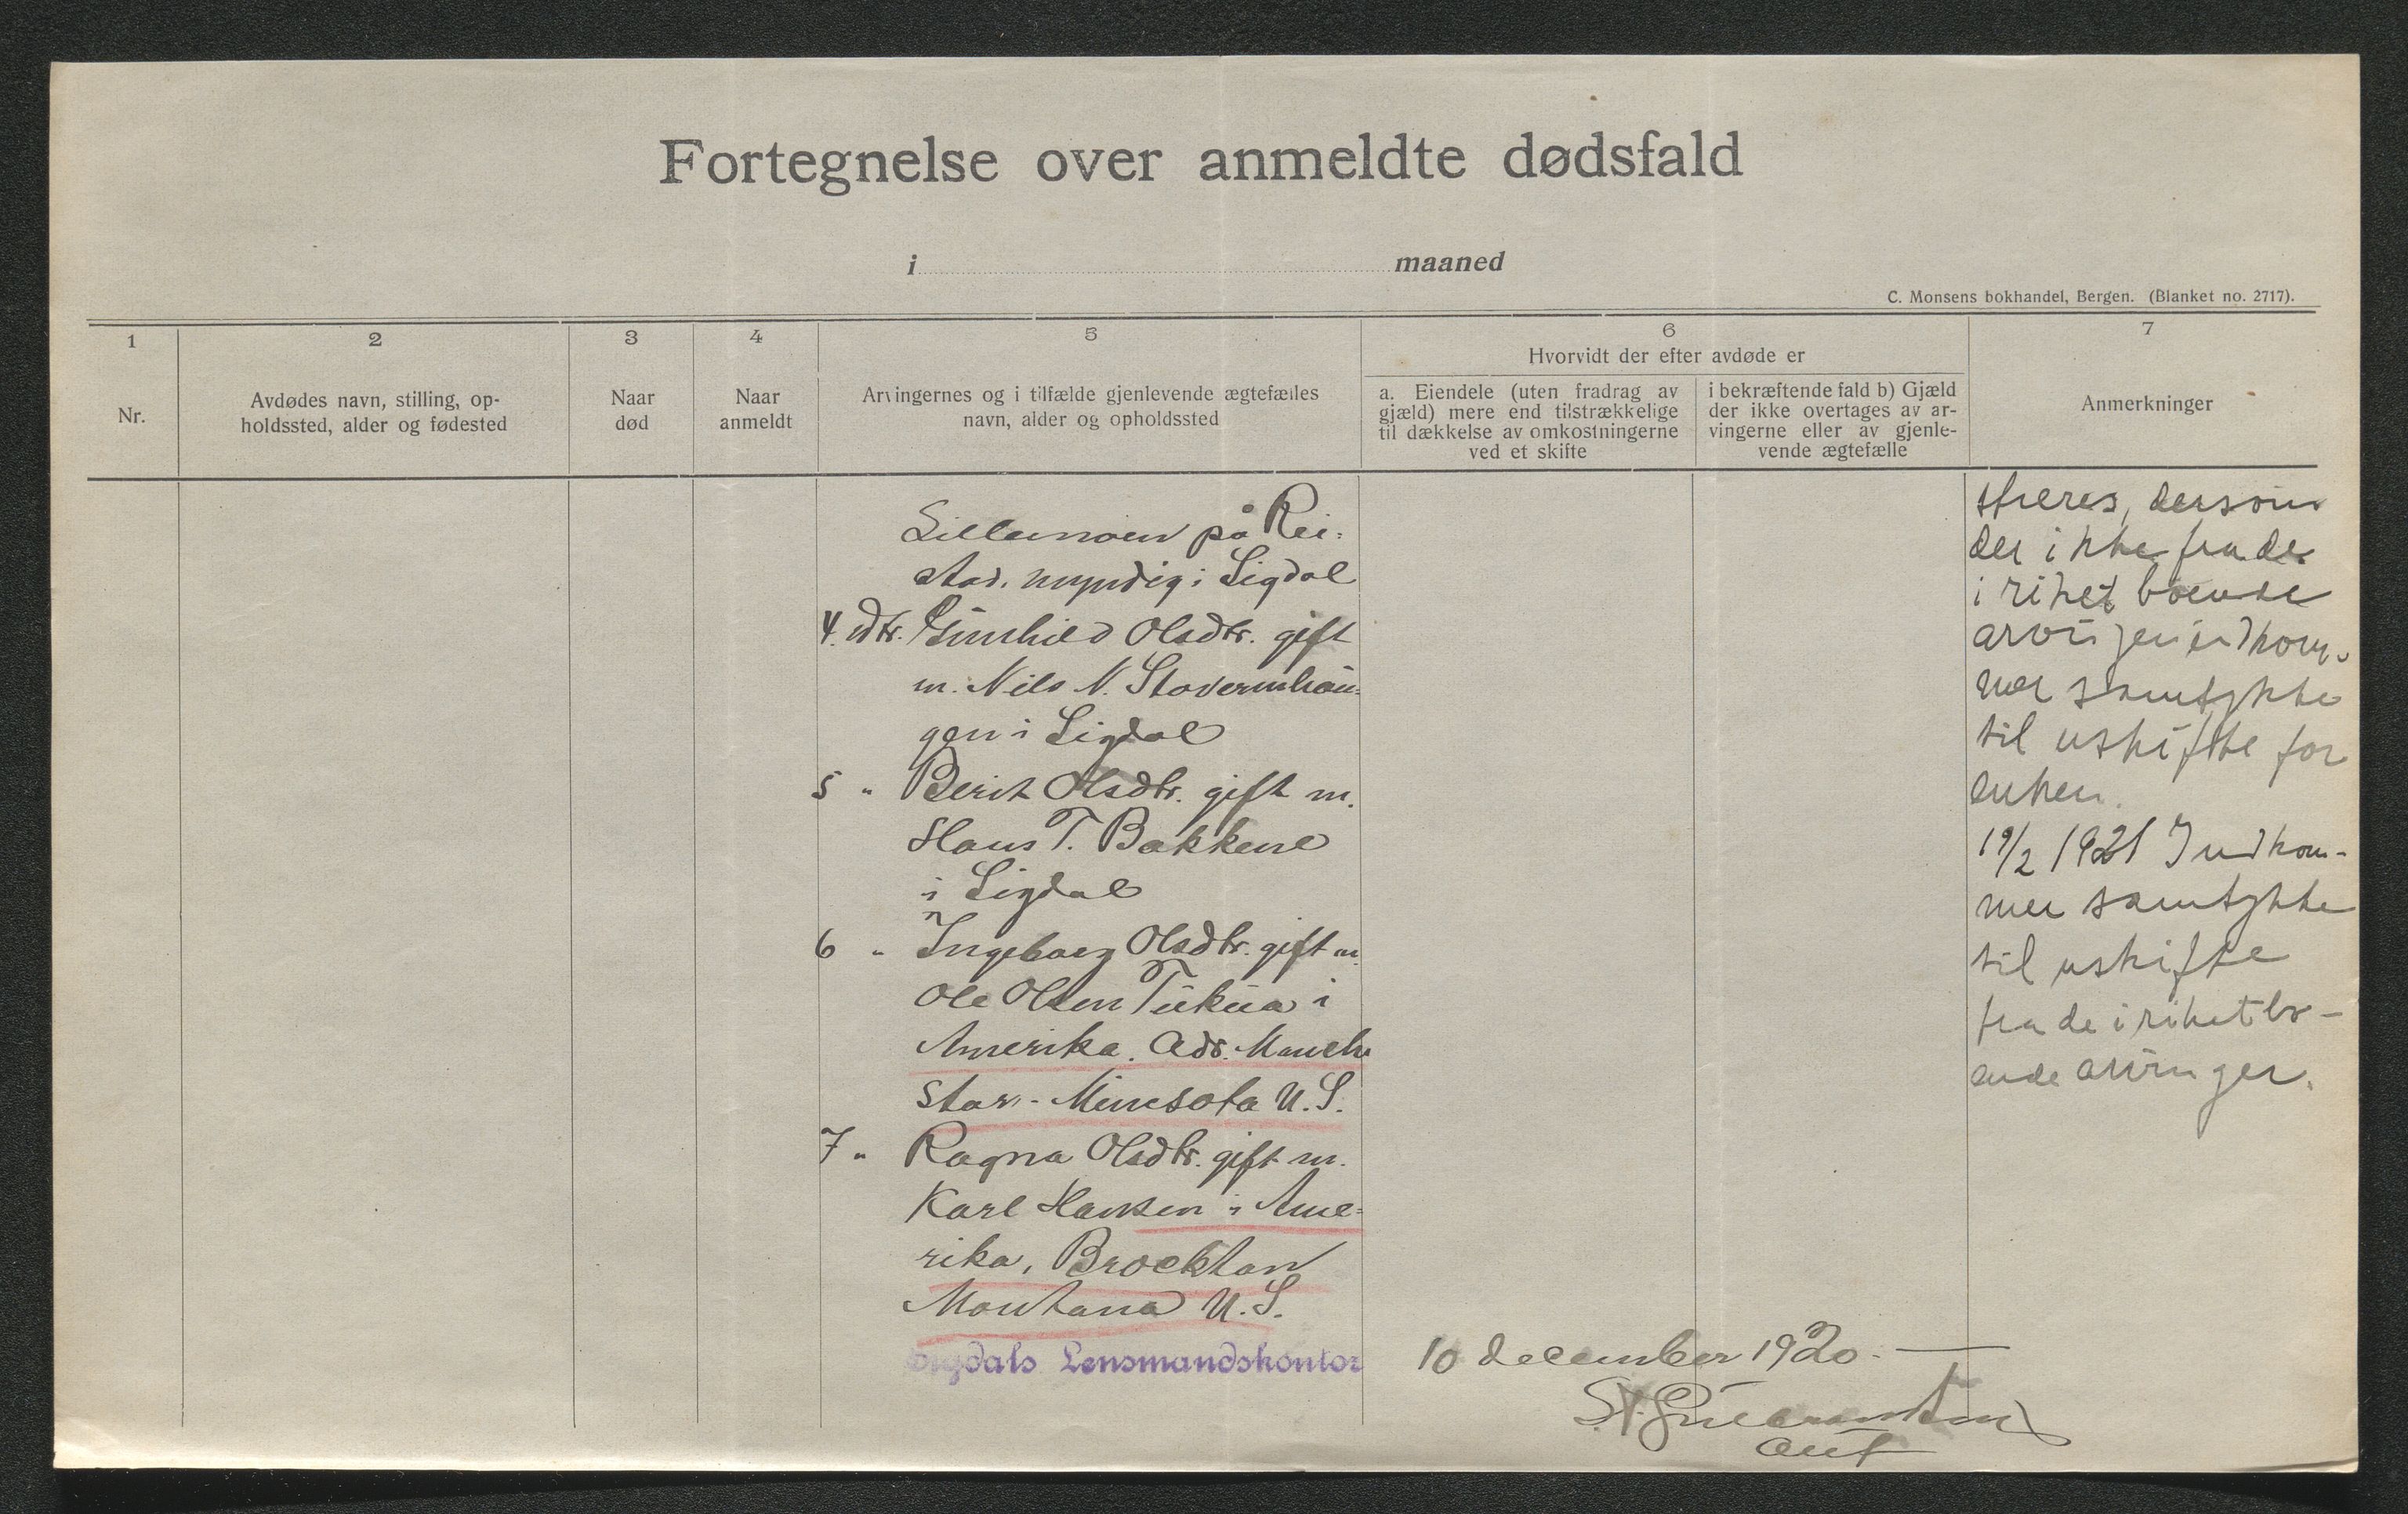 Fortegnelse over anmeldte dødsfald
i maaned
C. Monsens bokhandel, Bergen. (Blanket no. 2717).
1
Nr.
2
Avdødes navn, stilling, op-
holdssted, alder og fødested
3
Naar
død
4
Naar
anmeldt
5
Arvingernes og i tilfælde gjenlevende ægtefælles
navn, alder og opholdssted
6
Hvorvidt der efter avdøde er
a. Eiendele (uten fradrag av
gjæld) mere end tilstrækkelige
til dækkelse av omkostningerne
ved et skifte
i bekræftende fald b) Gjæld
der ikke overtages av ar-
vingerne eller av gjenle-
vende ægtefælle
7
Anmerkninger
Lillemoen på Rei-
stad. myndig i Sigdal
4. dtr. Gunhild Olsdtr. gift
m. Nils N. Stovernhaug-
gen i Sigdal
5 " Berit Olsdtr. gift m.
Hans T. Bakkene
i Sigdal
6 " Ingeborg Olsdtr. gift m.
Ole Olsen i
Amerika. Adr. Manche
star - Minesota U.S.
7 " Ragna Olsdtr. gift m.
Karl Hansen i Ame-
rika, Brocktan
Montana U.S.
Sigdals Lensmandskontor
10 december 1920.
aut
dersom
der ikke fra de
i riket boende
arvinger indkom-
mer samtykke
til uskifte for
enken.
19/2 1921 Indkom-
mer samtykke
til uskifte
fra de i riket bo-
ende arvinger.